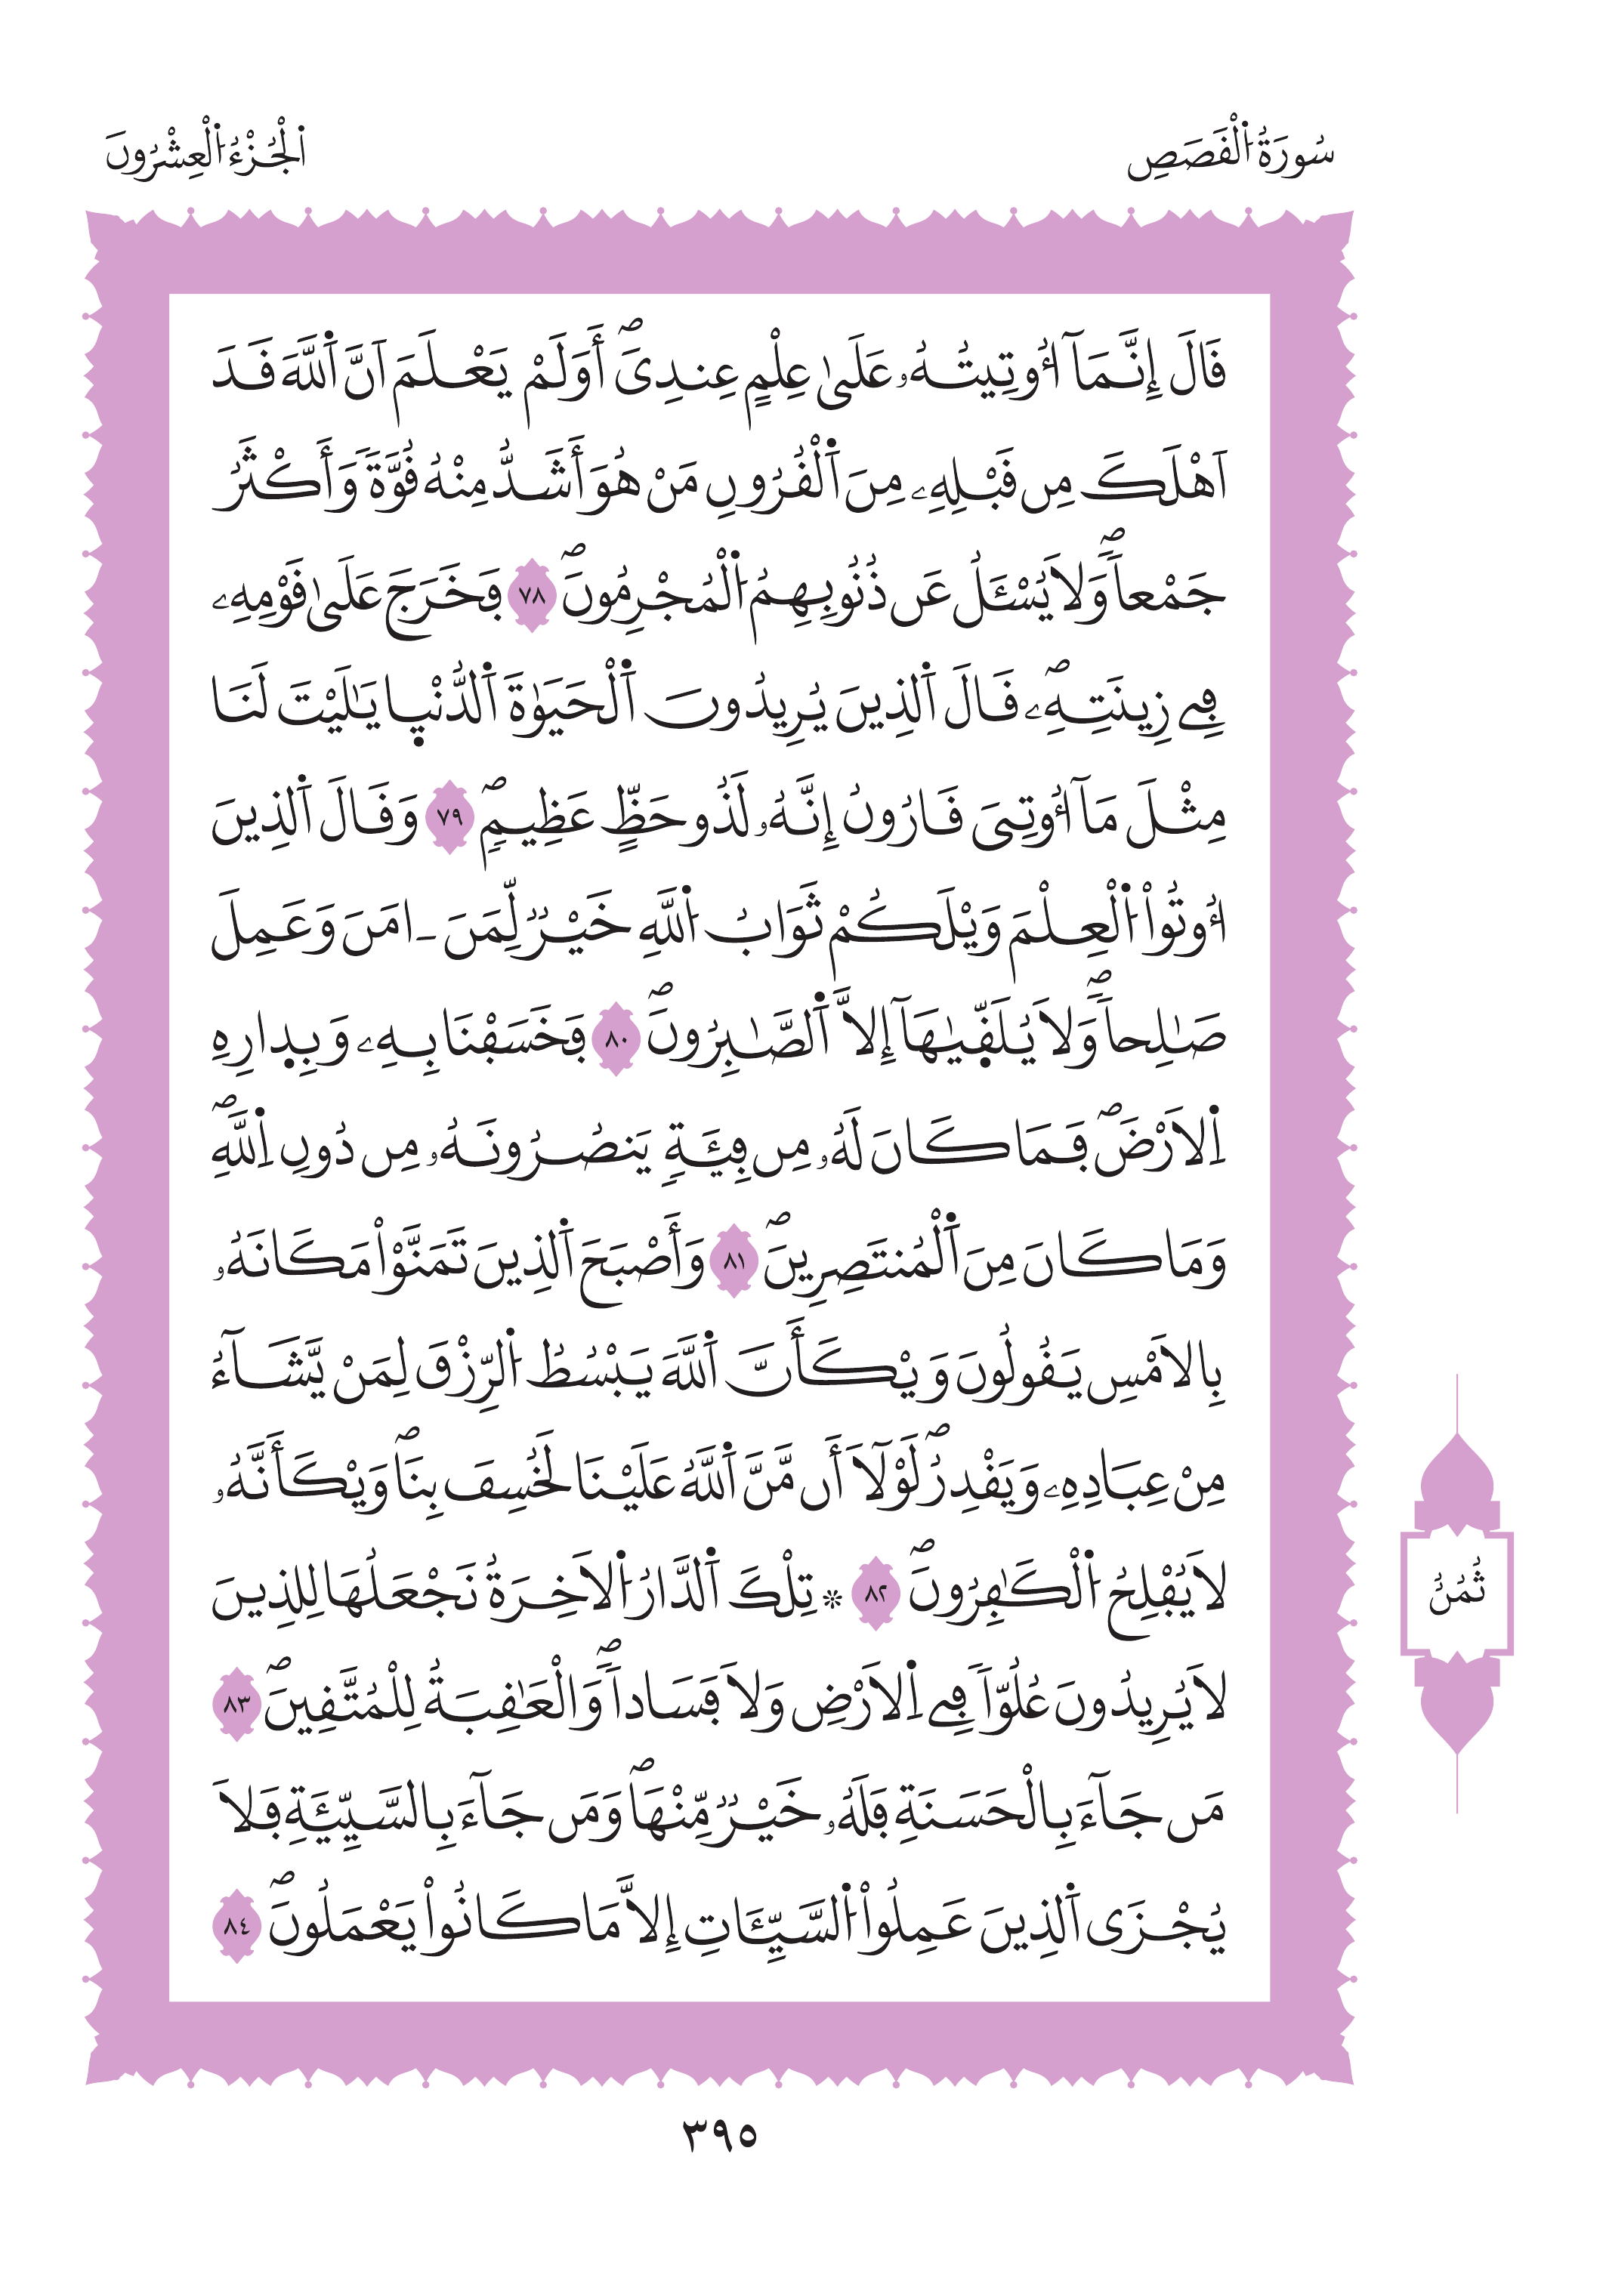 سُورَةُ اُ۬لْقَصَصِ
اَ۬لْجُزْءُ اُ۬لْعِشْرُونَ
قَالَ إِنَّمَآ أُوتِيتُهُۥ عَلَىٰ عِلْمٍ عِندِيَۖ أَوَلَمْ يَعْلَمَ اَنَّ اَ۬للَّهَ قَدَ
اَهْلَكَ مِن قَبْلِهِۦ مِنَ اَ۬لْقُرُونِ مَنْ هُوَ أَشَدُّ مِنْهُ قُوَّةٗ وَأَكْثَرُ
جَمْعاٗۖ وَلَا يُسْـَٔلُ عَن ذُنُوبِهِمُ اُ۬لْمُجْرِمُونَۖ ٧٨ فَخَرَجَ عَلَىٰ قَوْمِهِۦ
فِے زِينَتِهِۦۖ قَالَ اَ۬لذِينَ يُرِيدُونَ اَ۬لْحَيَوٰةَ اَ۬لدُّنْي۪ا يَٰلَيْتَ لَنَا
مِثْلَ مَآ أُوتِيَ قَارُونُ إِنَّهُۥ لَذُو حَظٍّ عَظِيمٖۖ ٧٩ وَقَالَ اَ۬لذِينَ
أُوتُواْ اُ۬لْعِلْمَ وَيْلَكُمْ ثَوَابُ اُ۬للَّهِ خَيْرٞ لِّمَنَ ـ امَنَ وَعَمِلَ
صَٰلِحاٗۖ وَلَا يُلَقّ۪يٰهَآ إِلَّا اَ۬لصَّٰبِرُونَۖ ٨٠ فَخَسَفْنَا بِهِۦ وَبِد۪ارِهِ
اِ۬لَارْضَۖ فَمَا كَانَ لَهُۥ مِن فِئَةٖ يَنصُرُونَهُۥ مِن دُونِ اِ۬للَّهِۖ
وَمَا كَانَ مِنَ اَ۬لْمُنتَصِرِينَۖ ٨١ وَأَصْبَحَ اَ۬لذِينَ تَمَنَّوْاْ مَكَانَهُۥ
بِالَامْسِ يَقُولُونَ وَيْكَأَنَّ اَ۬للَّهَ يَبْسُطُ اُ۬لرِّزْقَ لِمَنْ يَّشَآءُ
مِنْ عِبَادِهِۦ وَيَقْدِرُۖ لَوْلَآ أَن مَّنَّ اَ۬للَّهُ عَلَيْنَا لَخُسِفَ بِنَاۖ وَيْكَأَنَّهُۥ
لَا يُفْلِحُ اُ۬لْكَٰفِرُونَۖ ٨٢ * تِلْكَ اَ۬لدَّارُ اُ۬لَاخِرَةُ نَجْعَلُهَا لِلذِينَ
لَا يُرِيدُونَ عُلُوّاٗ فِے اِ۬لَارْضِ وَلَا فَسَاداٗۖ وَالْعَٰقِبَةُ لِلْمُتَّقِينَۖ ٨٣
مَن جَآءَ بِالْحَسَنَةِ فَلَهُۥ خَيْرٞ مِّنْهَاۖ وَمَن جَآءَ بِالسَّيِّئَةِ فَلَا
يُجْزَي اَ۬لذِينَ عَمِلُواْ اُ۬لسَّيِّـَٔاتِ إِلَّا مَا كَانُواْ يَعْمَلُونَۖ ٨٤
ثُمُنُ
٣٩٥